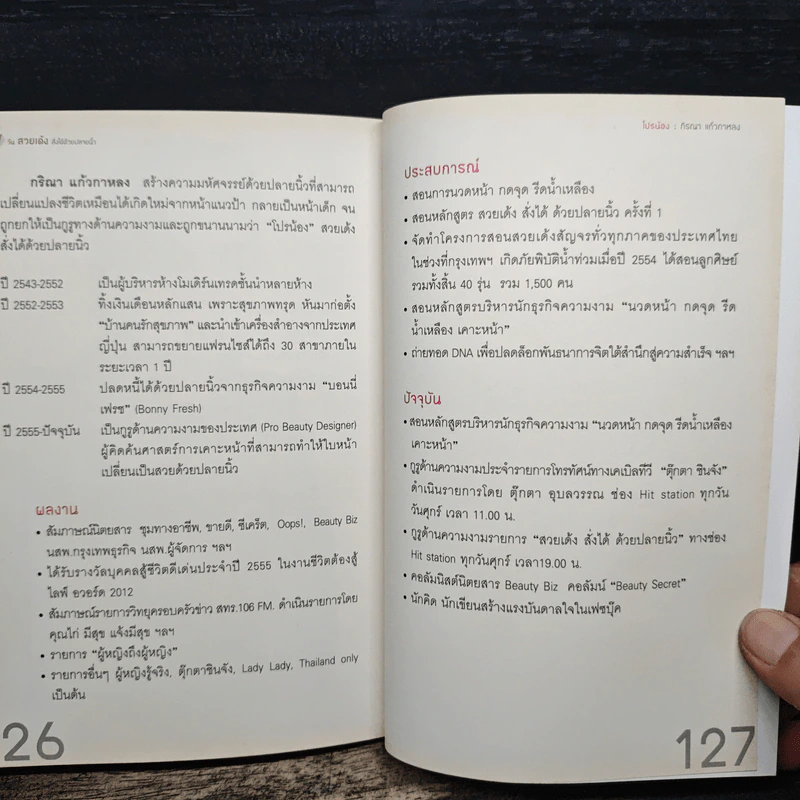 วัน สวยเด้ง สั่งได้ด้วยปลายนิ้ว
กริณา แก้วกาหลง สร้างความมหัศจรรย์ด้วยปลายนิ้วที่สามารถ
เปลี่ยนแปลงชีวิตเหมือนได้เกิดใหม่จากหน้าแนวป้า กลายเป็นหน้าเด็ก จน
ถูกยกให้เป็นกูรูทางด้านความงามและถูกขนานนามว่า "โปรน้อง" สวยเด้ง
สั่งได้ด้วยปลายนิ้ว
ปี 2543-2552 เป็นผู้บริหารห้างโมเดิร์นเทรดชั้นนำหลายห้าง
ปี 2552-2553 ทิ้งเงินเดือนหลักแสน เพราะสุขภาพทรุด หันมาก่อตั้ง
"บ้านคนรักสุขภาพ" และนำเข้าเครื่องสำอางจากประเทศ
ญี่ปุ่น สามารถขยายแฟรนไชส์ได้ถึง 30 สาขาภายใน
ระยะเวลา 1 ปี
ปี 2554-2555 ปลดหนี้ได้ด้วยปลายนิ้วจากธุรกิจความงาม "บอนนี่
เฟรช" (Bonny Fresh)
ปี 2555-ปัจจุบัน เป็นกูรูด้านความงามของประเทศ (Pro Beauty Designer)
ผู้คิดค้นศาสตร์การเคาะหน้าที่สามารถทำให้ใบหน้า
เปลี่ยนเป็นสวยด้วยปลายนิ้ว
ผลงาน
• สัมภาษณ์นิตยสาร ชุมทางอาชีพ, ขายดี, ซีเคร็ต, Oops!, Beauty Biz
นสพ.กรุงเทพธุรกิจ นสพ.ผู้จัดการ ฯลฯ
• ได้รับรางวัลบุคคลสู้ชีวิตดีเด่นประจำปี 2555 ในงานชีวิตต้องสู้
ไลฟ์ อวอร์ด 2012
• สัมภาษณ์รายการวิทยุครอบครัวข่าว สทร.106 FM. ดำเนินรายการโดย
คุณไก่ มีสุข แจ้งมีสุข ฯลฯ
• รายการ "ผู้หญิงถึงผู้หญิง"
• รายการอื่นๆ ผู้หญิงรู้จริง, ตุ๊กตาซินจัง, Lady Lady, Thailand only
เป็นต้น
26
โปรน้อง : กิรณา แก้วกาหลง
ประสบการณ์
• สอนการนวดหน้า กดจุด รีดน้ำเหลือง
• สอนหลักสูตร สวยเด้ง สั่งได้ ด้วยปลายนิ้ว ครั้งที่ 1
• จัดทำโครงการสอนสวยเด้งสัญจรทั่วทุกภาคของประเทศไทย
ในช่วงที่กรุงเทพฯ เกิดภัยพิบัติน้ำท่วมเมื่อปี 2554 ได้สอนลูกศิษย์
รวมทั้งสิ้น 40 รุ่น รวม 1,500 คน
• สอนหลักสูตรบริหารนักธุรกิจความงาม "นวดหน้า กดจุด รีด
น้ำเหลือง เคาะหน้า"
• ถ่ายทอด DNA เพื่อปลดล็อกพันธนาการจิตใต้สำนึกสู่ความสำเร็จ ฯลฯ
ปัจจุบัน
• สอนหลักสูตรบริหารนักธุรกิจความงาม "นวดหน้า กดจุด รีดน้ำเหลือง
เคาะหน้า"
• กูรูด้านความงามประจำรายการโทรทัศน์ทางเคเบิลทีวี "ตุ๊กตา ซินจัง"
ดำเนินรายการโดย ตุ๊กตา อุบลวรรณ ช่อง Hit station ทุกวัน
วันศุกร์ เวลา 11.00 น.
• กูรูด้านความงามรายการ "สวยเด้ง สั่งได้ ด้วยปลายนิ้ว" ทางช่อง
Hit station ทุกวันศุกร์ เวลา19.00 น.
• คอลัมนิสต์นิตยสาร Beauty Biz คอลัมน์ "Beauty Secret"
• นักคิด นักเขียนสร้างแรงบันดาลใจในเฟซบุ๊ค
127